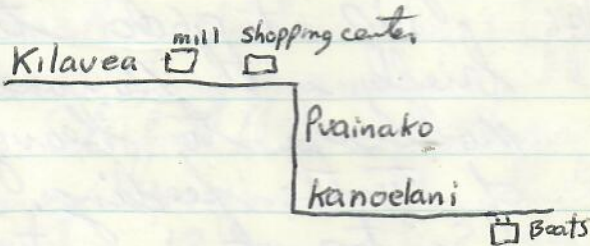 mill shopping center
Kilavea
Puainako
Kanoelani
Boats